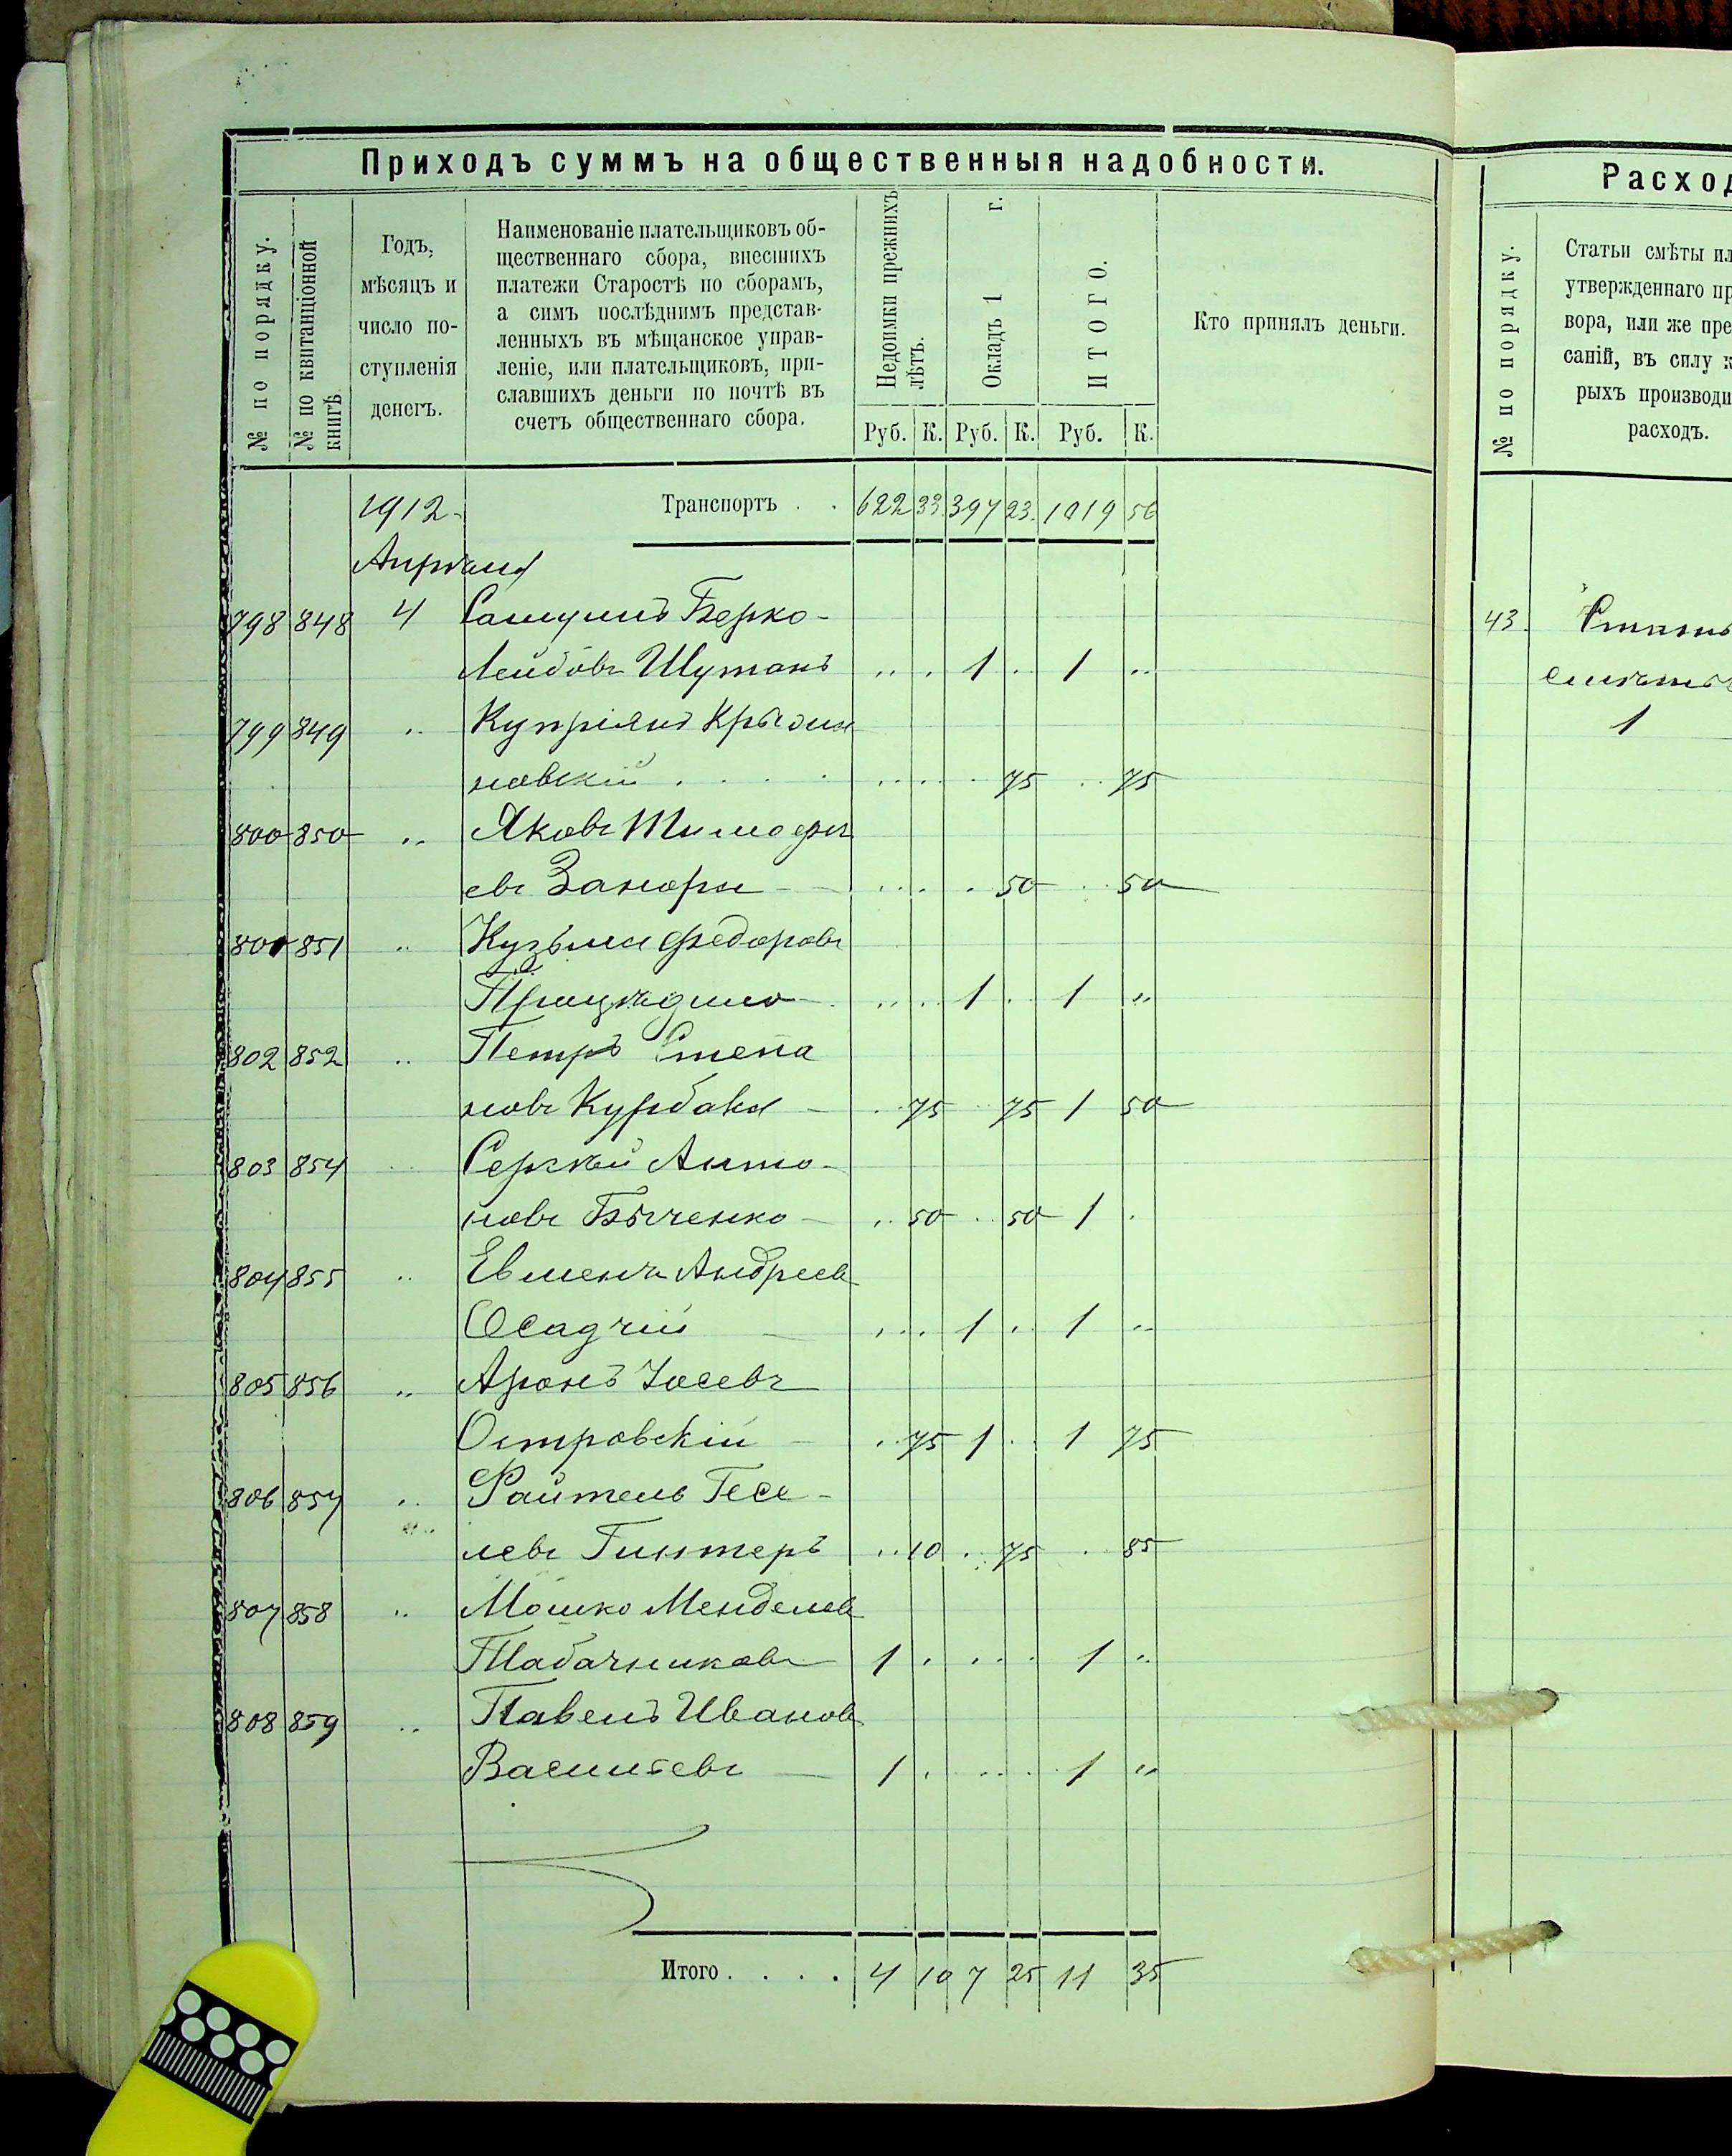 Приходъ суммъ на общественныя надобности.
№ по порядку.
№ по квитанціонной книгѣ
Годъ, мѣсяцъ и число поступленія денегъ.
Наименованіе плательщиковъ об-
щественнаго сбора, внесшихъ
платежи Старостѣ по сборамъ,
а симъ послѣднимъ представ-
ленныхъ въ мѣщанское управ-
леніе, или плательщиковъ, при-
славшихъ деньги по почтѣ въ
счетъ общественнаго сбора.
Недоимки прежнихъ лѣтъ.
Окладъ 1 г.
ИТОГО.
Кто принялъ деньги.
Руб. К. Руб. К. Руб. К.
1912 Транспортъ . . 622 33 397 23 1019 56
Апрѣля
798 848 4 Самуилъ Берко-
Лейбовъ Шуманъ .. . 1 . 1 ..
799 849 ..
новскій . . . . 75 .. 75
800 850 .. Яковъ Тимофе
евъ 50 .. 50
801 851 .. Кузьма Федоровъ
1 . 1 "
802 852 .. Петръ Степа
новъ Курбака - .. 75 .. 75 1 50
803 854 .. Сергѣй Анто-
новъ Быченко - .. 50 .. 50 1 .
804 855 .. Евменъ Андреев
Осадчій - ... 1 .. 1 ..
805 856 .. Аронъ Іосевъ
Островскій - .. 75 1 .. 1 75
806 857 .. Файтель Гесе-
левъ Гинтеръ .. 10 .. 75 . 85
807 858 .. Мошко Менделев
Табачниковъ 1 . ... 1 ..
808 859 .. Павелъ Иванов
Васильевъ - 1 . ... 1 "
Итого . . . . 4 10 7 25 11 35
Расход
№ по порядку.
Статьи смѣты ил
утвержденнаго пр
вора, или же пре
саній, въ силу к
рыхъ производи
расходъ.
43.
1